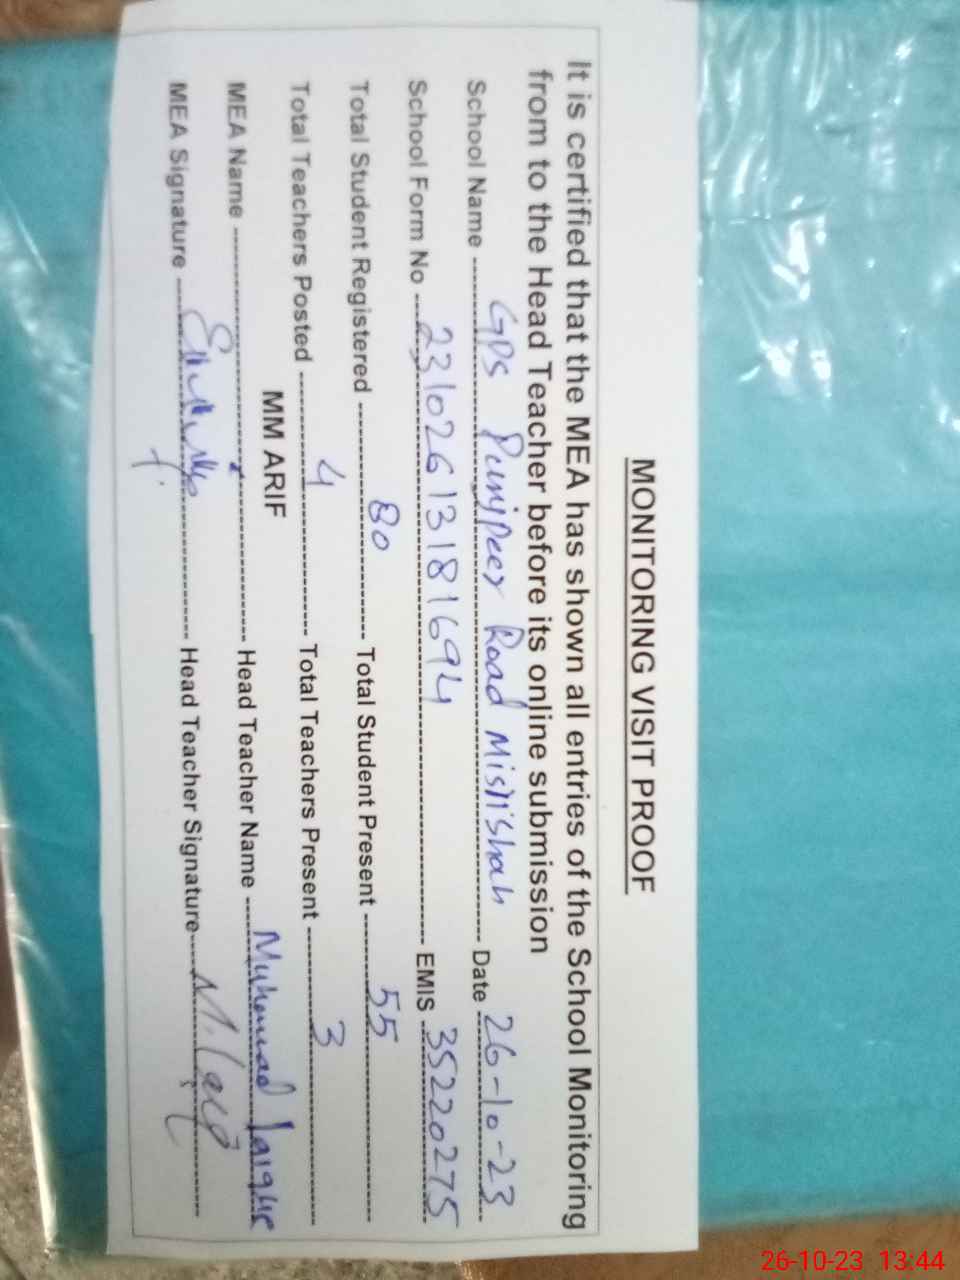 MONITORING VISIT PROOF
It is certified that the MEA has shown all entries of the School Monitoring
from to the Head Teacher before its online submission
School Name GPS Punjpeer Road Misrishah Date 26-10-23
School Form No 23102613181694 EMIS 35220275
Total Student Registered 80 Total Student Present 55
Total Teachers Posted 4 Total Teachers Present 3
MM ARIF
MEA Name Head Teacher Name Muhammad
MEA Signature Head Teacher Signature
26-10-23 13:44